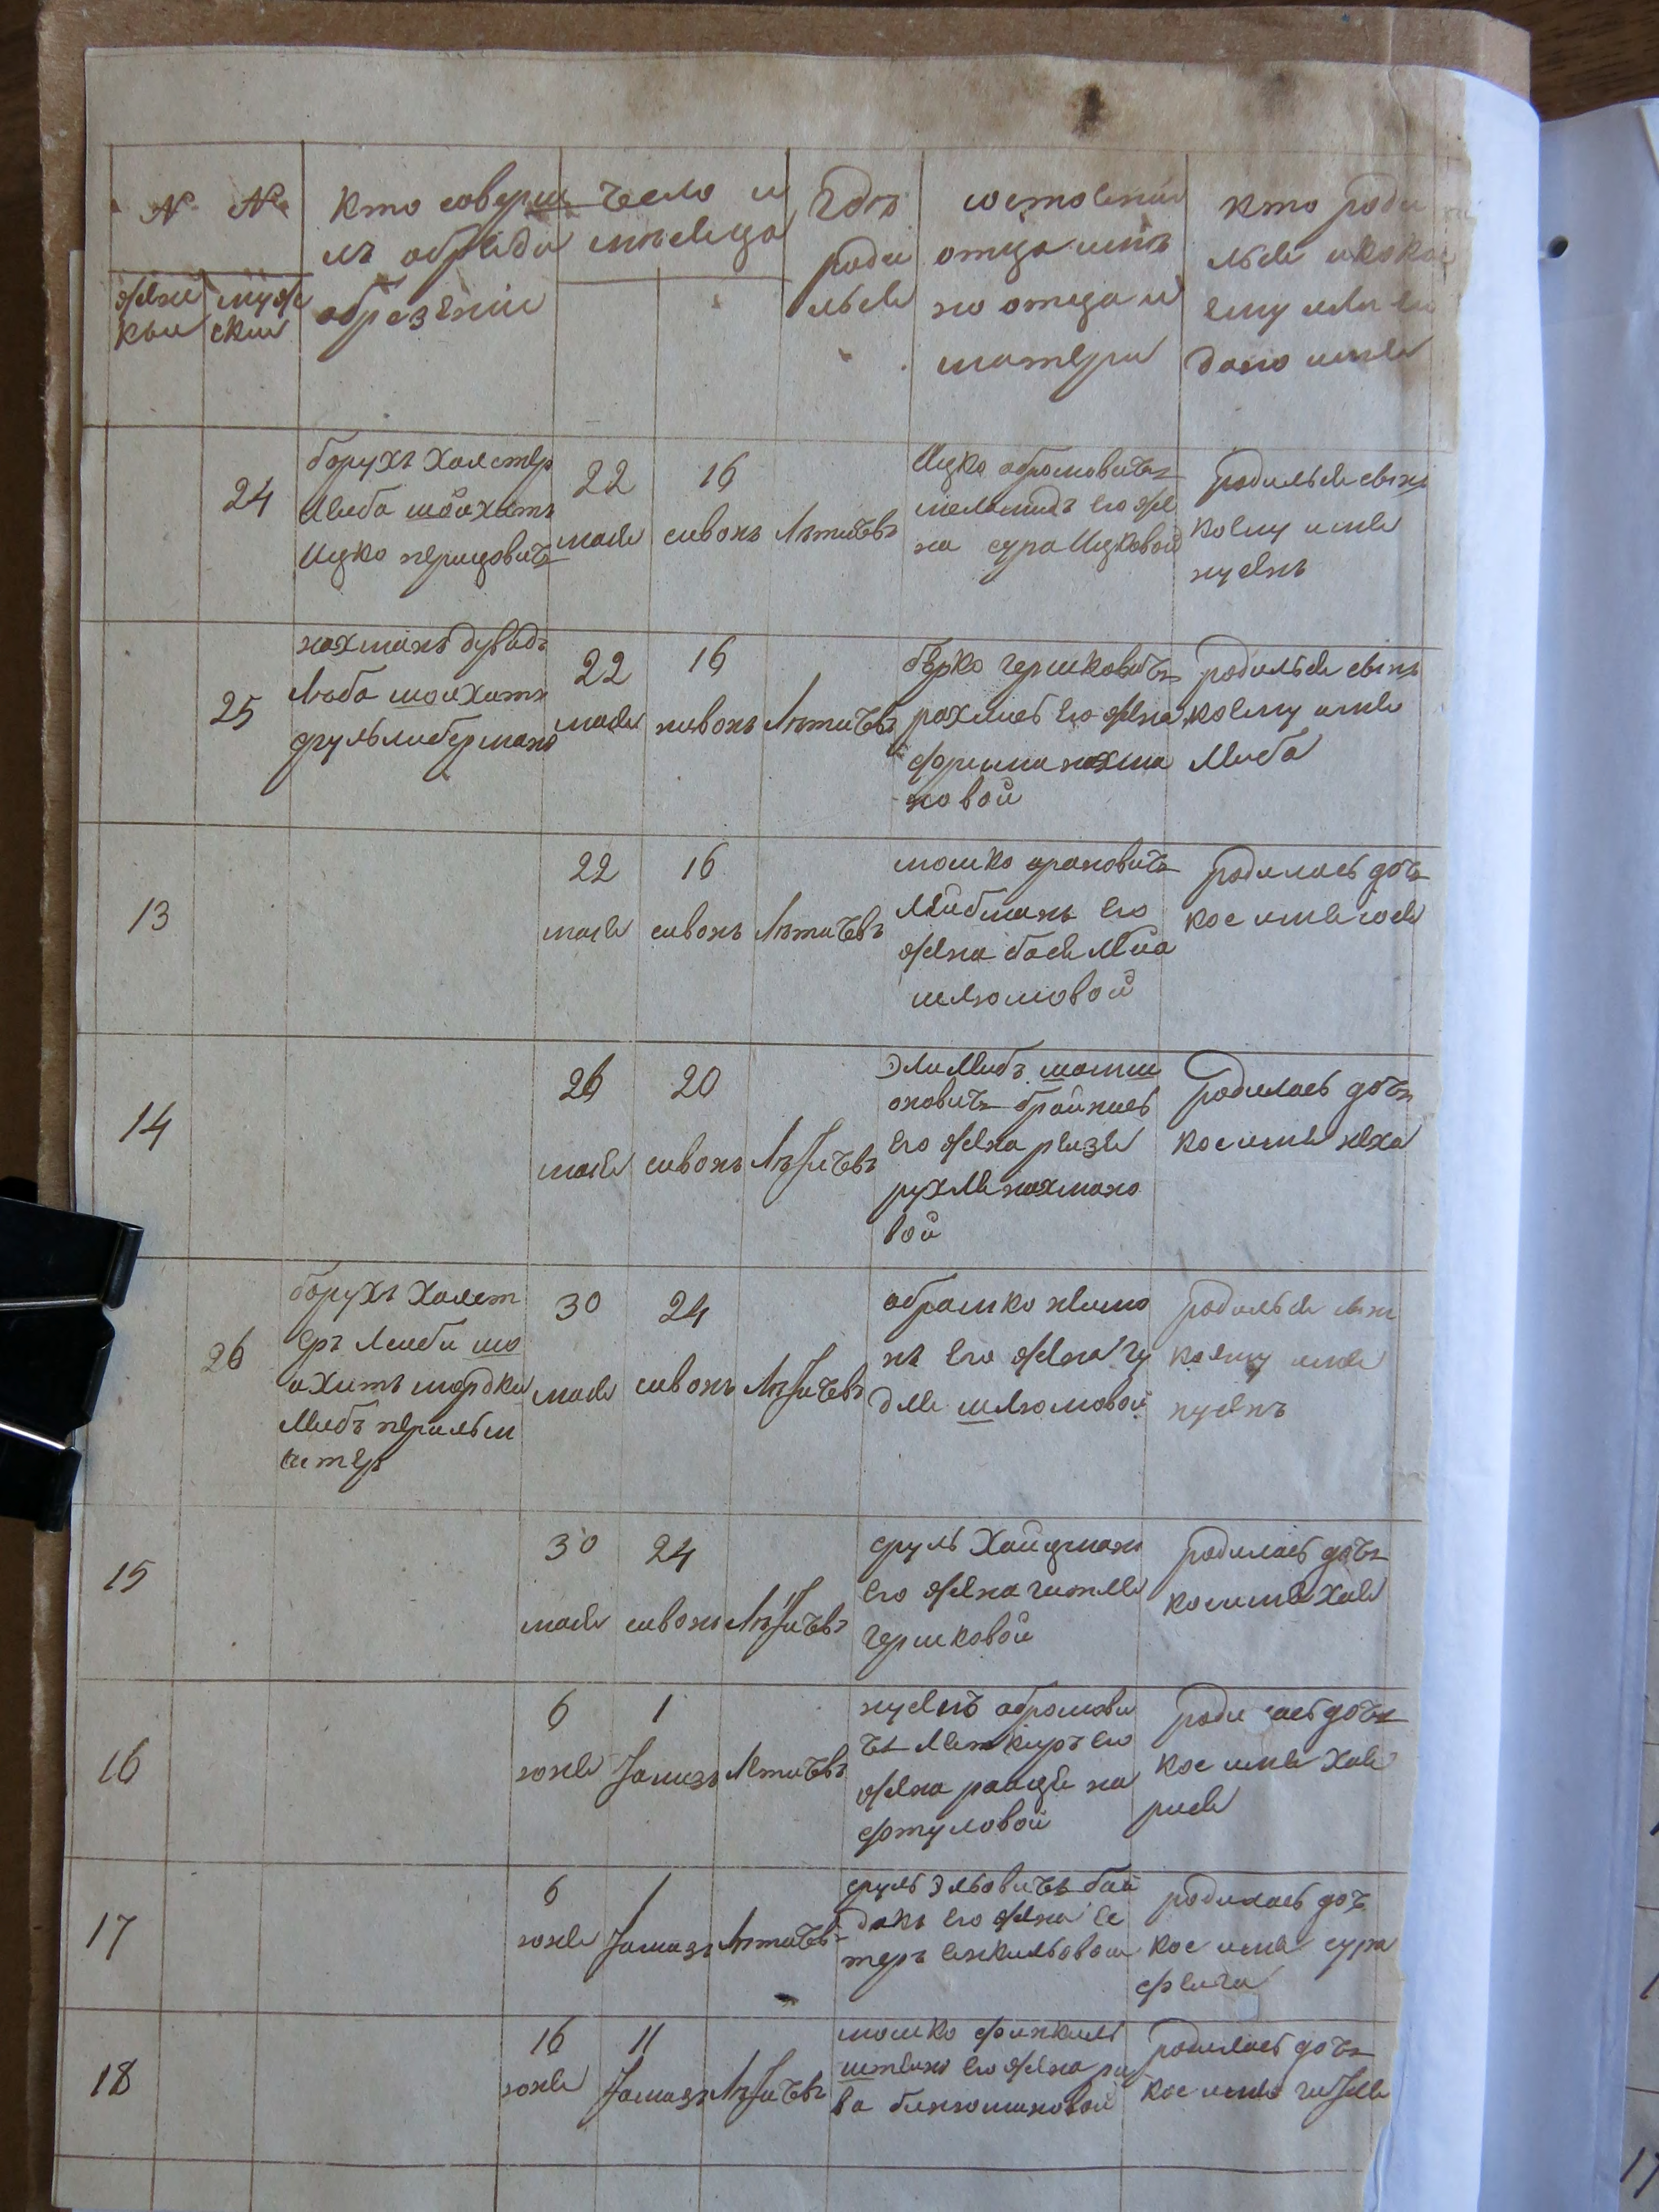 № №
женс муж
кыи скии
Кто соверши
лъ обряди
обрезеніи
Число и
мѣсяца
Гдѣ
роди
лься
состояніи
отца имѣ
но отца и
матери
кто роди
лься и како
ему или еи
дано имя
24
борухъ Халстер
Лиеба шоихатъ
Ицко перицовичъ
22
мая
16
сивонъ
Лѣтичевъ
Ицко абромовичъ
меламидъ его же
на сура Ицковой
родилься сынъ
коему имя
нусенъ
25
нахманъ бувадъ
Лиоба шоихатъ
сруль либермано
22
мая
16
сивонъ
Лѣтичевъ
берко гершковичъ
рахлисъ его жена
фрима нахма
новой
родилься сынъ
коему имя
Лиеба
13
22
мая
16
сивонъ
Лѣтичевъ
мошко ароновичъ
Лейбманъ его
жена бася Леиа
шлиомовой
родилась дочь
кое имя иося
14
26
мая
20
сивонъ
Лѣтичевъ
Эли Лиебъ
оновичъ брайнисъ
его жена реизя
рухля нахмано
вой
родилась дочь
кое имя неха
26
борухъ Халст
еръ Лиеби шо
ихитъ мордко
Лиебъ перильм
итер
30
мая
24
сивонъ
Лѣтичевъ
абрамко
его жена гу
для шлиомовой
родилься сын
коему имя
нусенъ
15
30
мая
24
сивонъ
Лѣтичевъ
сруль Хайцман
его жена гитля
гершковой
родилась дочь
кое имя Хая
16
6
юня
1
Тамизъ
Летичевъ
нусенъ абромови
чъ его
жена раице на
фтуловой
роди лась дочь
кое имя Хая
рися
17
6
юня
1
Тамизъ
Лѣтичевъ
сруль Эльовичъ бай
данъ его жена Ес
теръ енкильовои
родилась доч
кое имя сура
феига
18
16
юня
11
Тамизъ
Лѣтичевъ
мошко финкиль
штеино его жена ри
ва биниоминовой
родилась дочь
кое имя гитля